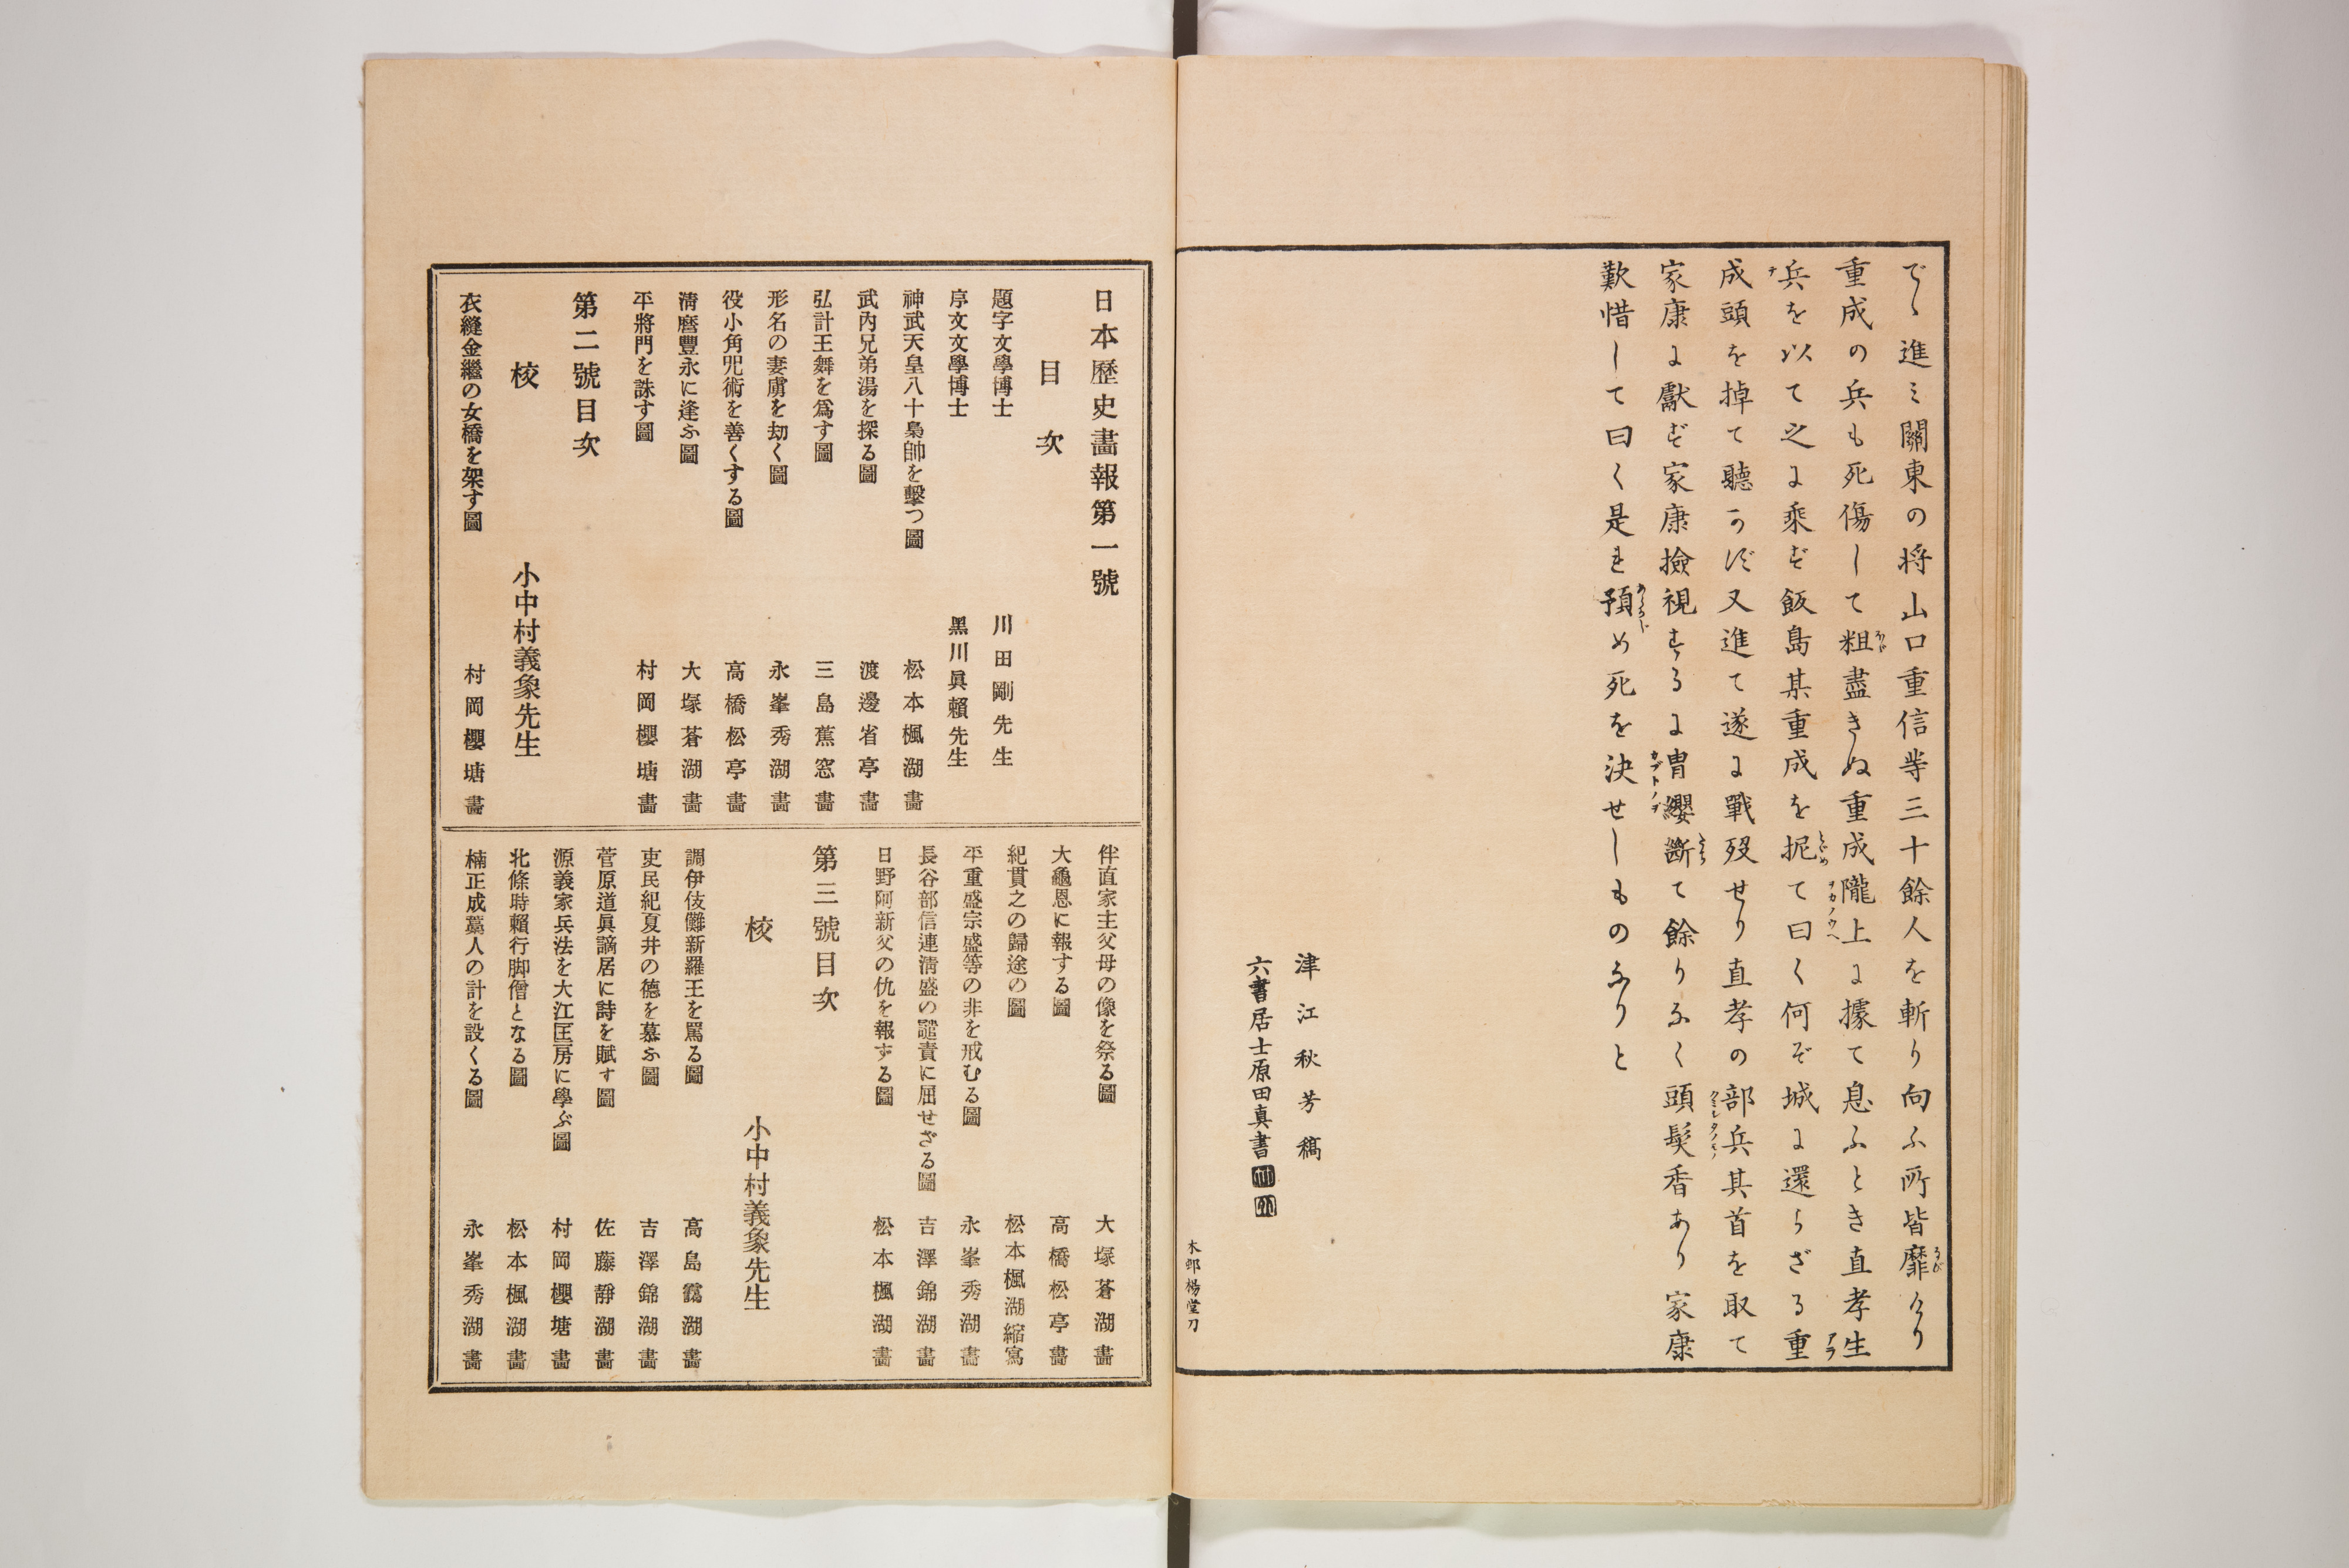 でゝ進ミ關東の将山口重信䓁三十餘人を斬り向ふ所皆靡けり
重成の兵も死傷して粗盡きぬ重成隴上に據て息ふとき直孝生
兵を以て之に乘ず飯島某重成を抳て曰く何ぞ城に還らざる重
成頭を掉て聽かず又進て遂に戰歿せり直孝の部兵其首を取て
家康に獻ず家康撿視するに冑纓斷て餘りなく頭髮香あり家康
歎惜して曰く是れ預め死を決せしものなりと
津江秋芳稿
六書居士原田真書
木邨楊堂刀
日本歷史畫報第一號
目次
題字文學博士 川田剛先生
序文文學博士 黑川眞賴先生
神武天皇八十梟帥を擊つ圖 松本楓湖畫
武內兄弟湯を探る圖 渡邊省亭畫
弘計王舞を爲す圖 三島蕉窓畫
形名の妻虜を劫く圖 永峯秀湖畫
役小角咒術を善くする圖 高橋松亭畫
淸麿豐永に逢ふ圖 大塚蒼湖畫
平將門を誅す圖 村岡櫻塘畫
第二號目次
校 小中村義象先生
衣縫金繼の女橋を架す圖 村岡櫻塘畫
伴直家主父母の像を祭る圖 大塚蒼湖畫
大龜恩に報する圖 高橋松亭畫
紀貫之の歸途の圖 松本楓湖縮寫
平重盛宗盛等の非を戒むる圖 永峯秀湖畫
長谷部信連淸盛の譴責に屈せざる圖 吉澤錦湖畫
日野阿新父の仇を報ずる圖 松本楓湖畫
第三號目次
校 小中村義象先生
調伊伎儺新羅王を罵る圖 高島靄湖畫
吏民紀夏井の德を慕ふ圖 吉澤錦湖畫
菅原道眞謫居に詩を賦す圖 佐藤靜湖畫
源義家兵法を大江匡房に學ぶ圖 村岡櫻塘畫
北條時賴行脚僧となる圖 松本楓湖畫
楠正成藁人の計を設くる圖 永峯秀湖畫